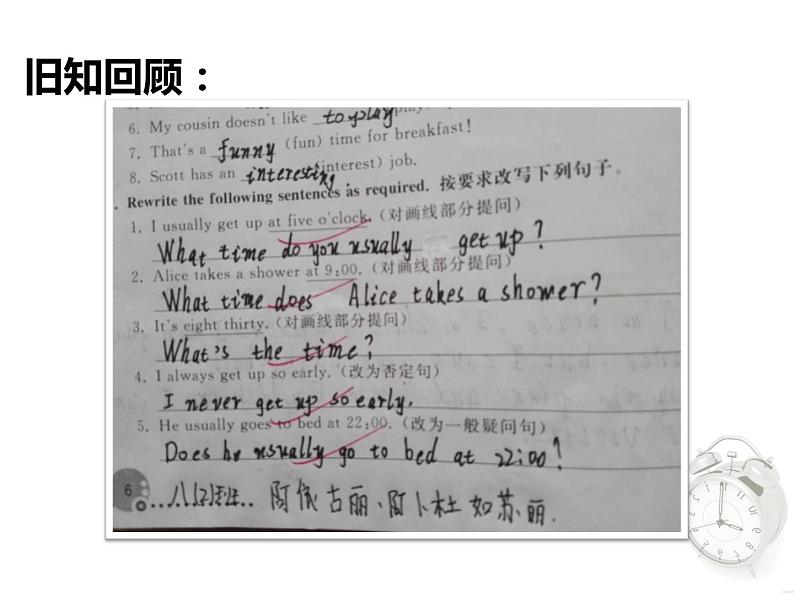 旧知回顾：
6. My cousin doesn't like to play
7. That's a funny (fun) time for breakfast!
8. Scott has an interesting (interest) job.
Rewrite the following sentences as required. 按要求改写下列句子。
1. I usually get up at five o'clock. (对画线部分提问)
What time do you usually get up?
2. Alice takes a shower at 9:00. (对画线部分提问)
What time does Alice takes a shower?
3. It's eight thirty. (对画线部分提问)
What's the time?
4. I always get up so early. (改为否定句)
I never get up so early.
5. He usually goes to bed at 22:00. (改为一般疑问句)
Does he usually go to bed at 22:00?
6
阿依古丽、阿卜杜如苏丽.